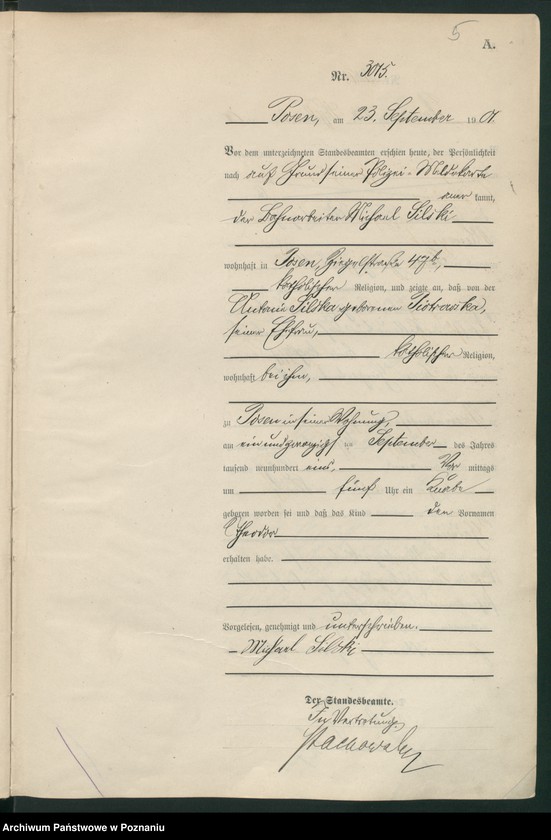 5
A.
Nr. 3015.
Posen, am 23. September 1901.
Vor dem unterzeichneten Standesbeamten erschien heute, der Persönlichkeit
nach auf Grund seiner Polizei-Meldekarte
aner kannt,
der Bahnarbeiter Michael Silski
wohnhaft in Posen,
katholischer Religion, und zeigte an, daß von der
Antonie Silska geborenen Piotrowska,
seiner Ehefrau,
katholischer Religion,
wohnhaft bei ihm,
zu Posen in seiner Wohnung,
am einundzwanzigsten September des Jahres
tausend neunhundert eins, Vor mittags
um fünf Uhr ein Knabe
geboren worden sei und daß das Kind den Vornamen
Theodor
erhalten habe.
Vorgelesen, genehmigt und unterschrieben.
Michael Silski
Der Standesbeamte.
In Vertretung
Archiwum Państwowe w Poznaniu